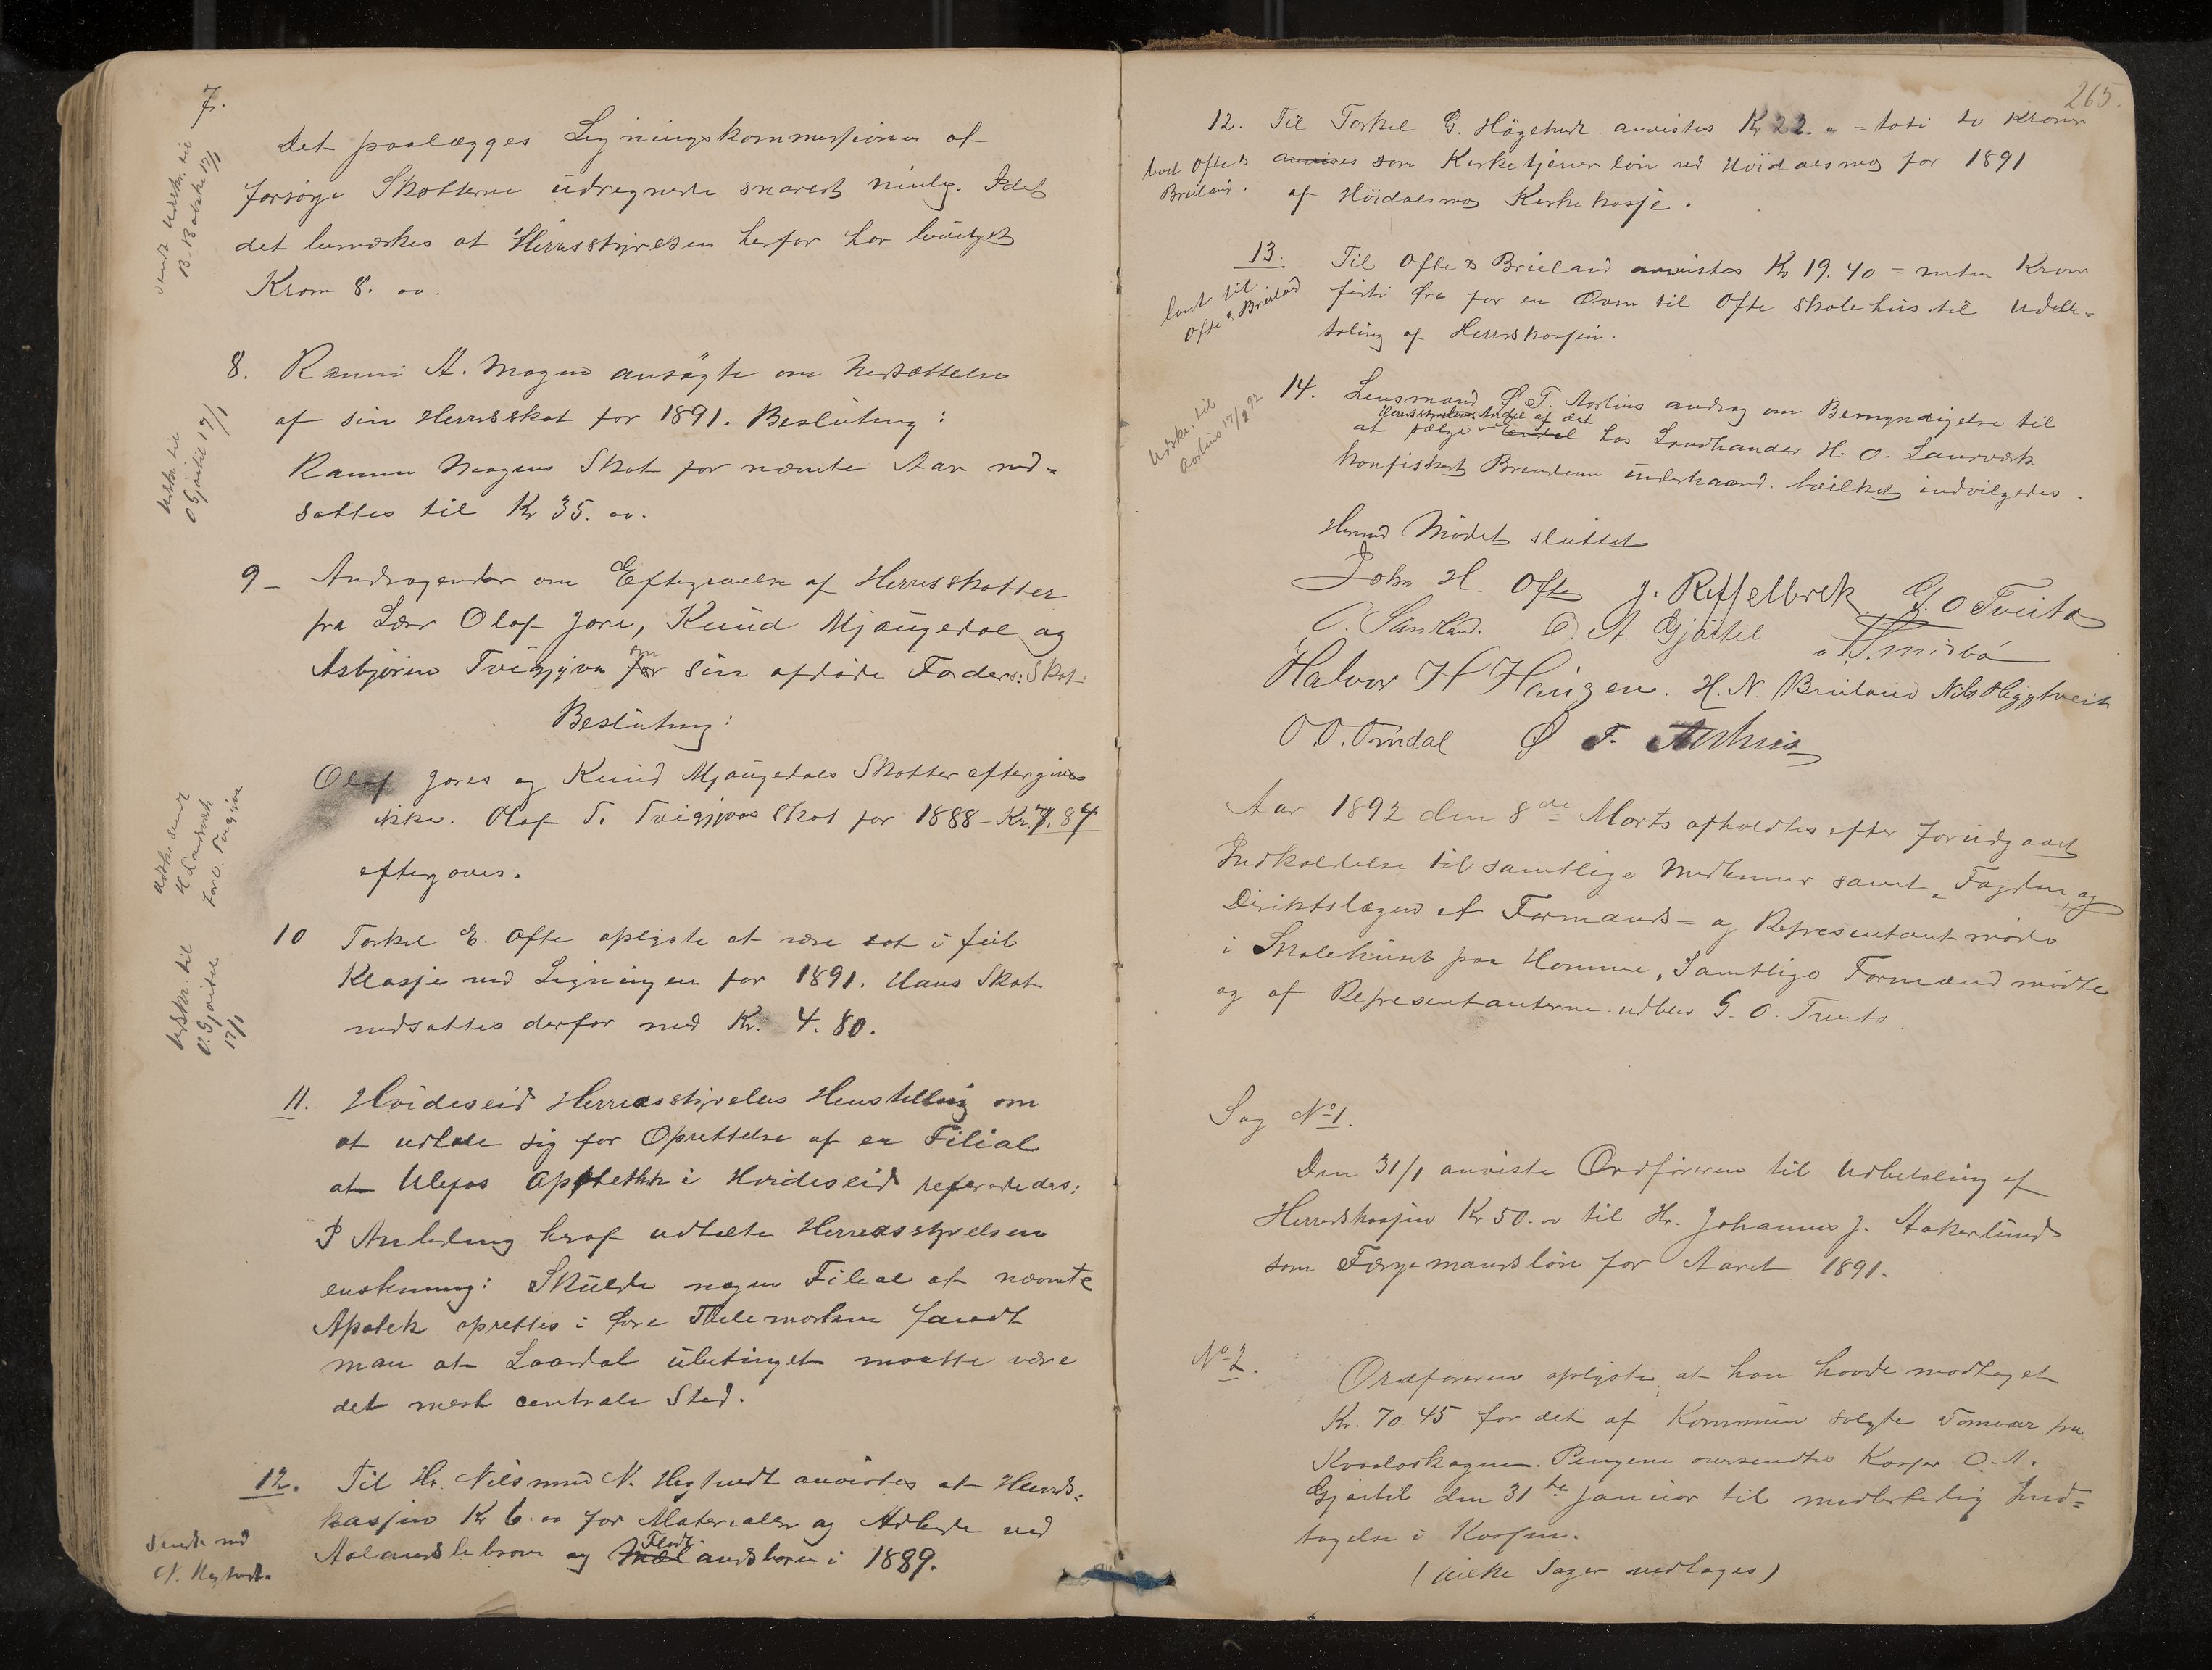 7.
Det paalægges Ligningskommissionen at
forsørge Skatterne udregnede snarest mulig. Idet
det bemærkes at Herredsstyrelsen herfor har bevilget
Kroner 8. 00.
sendt Udskr. til
B. Bakke 17/1
8. Ranni A. Mogen ansøgte om Nedsættelse
af sin Herredsskat for 1891. Beslutning:
Ranni Mogens Skat for nævnte Aar ned-
sattes til Kr 35. 00.
Udskr. til
O Gjøitil 17/1
9 - Andragender om Eftergivelse af Herredsskatter
fra Lærer Olaf Jore, Knud Mjaugedal og
Asbjørn Tveigjyva for om sin afdøde Faders: Skat:
Beslutning:
Olaf Jores og Knud Mjaugedals Skatter eftergives
ikke. Olaf T. Tveigjyvas Skat for 1888 - Kr. 7. 84
eftergaves.
Udskr sendt
H Laurværk
for O. Tveigjyva
10 Torkel E. Ofte oplyste at være sat i feil
Klasse ved Ligningen for 1891. Hans Skat
nedsattes derfor med Kr. 4. 80.
Udskr. til
O. Gjøitil
17/1
11. Hvideseid Herredsstyrelses Henstilling om
at udtale sig for Oprettelse af en Filial
af Ulefos Apothek i Hvideseid refereredes:
I Anledning heraf udtalte Herredsstyrelsen
enstemmig: Skulde nogen Filial af nævnte
Apotek oprettes i Øvre Thelemarken fandt
man at Laardal ubetinget maatte være
det mest centrale Sted.
12. Til Hr. Nils N. Hegtvedt anvistes af Herreds-
kassen Kr 6. 00 for Materialer og Arbeide ved
Aalandslibroen og Flatlandsbroen i 1889.
Sendt med
N. Hegtvedt.
265.
12. Til Torkel G. Høgetveit anvistes Kr 22. " = toti to Kroner
som Kirketjenerløn ved Høidalsmo for 1891
af Høidalsmo Kirkekasse.
lovt Ofte &
Breiland.
13. Til Ofte & Breiland anvistes Kr 19. 40 = nitten Kroner
førti Øre for en Ovn til Ofte Skolehus til Udbe-
taling af Herredskassen.
lovt til
Ofte & Breiland
14. Lensmand Ø. T. Aarhus androg om Bemyndigelse til
Herredsstyrelsens Andel af det
at sælge hos Landhandler H. O. Laurværk
konfiskert Brendevin underhaand. hvilket indvilgedes.
Udskr. til
Aarhus 17/2 92
Hermed Mødet sluttet
John H. Ofte J. Riffelbrek G. O Tveito
O. Sandland. O. A Gjøitil
Halvor H Haugen. H. N. Breiland Nils Heggtveit
O. O. Omdal Ø T. Aarhus
Aar 1892 den 8de Marts afholdtes efter forudgaaet
Indkaldelse til samtlige Medlemmer samt Fogden og
Distriktslægen et Formands- og Representantmøde
i Skolehuset paa Homme, Samtlige Formænd mødte
og af Representanterne udblev G. O. Tveito
Sag No 1.
Den 31/1 anviste Ordføreren til Udbetaling af
Herredskassen Kr 50. 00 til Hr. Johannes J. Aakerlund
som Færgemandsløn for Aaret 1891.
No 2.
Ordføreren oplyste, at han havde modtaget
Kr. 70. 45 for det af Kommunen solgte Tømmer fra
Kvaaleskogen. Pengene oversendtes Kasser O. A.
Gjøitil den 31te Januar til midlertidig Ind-
tagelse i Kassen.
(hvilke Sager vedtages)